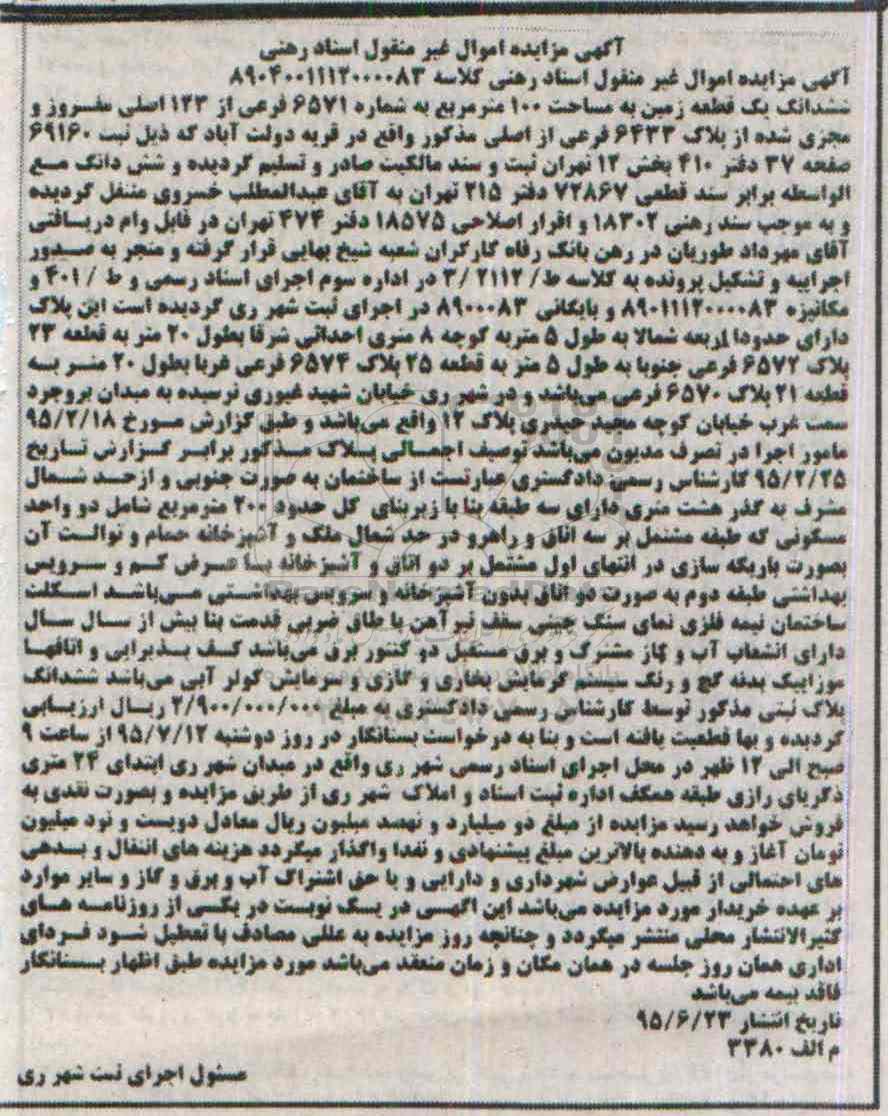 آگهی مزایده اموال غیر منقول اسناد رهنی
آگهی مزایده اموال غیر منقول اسناد رهنی کلاسه ۸۹۰۴۰۰۱۱۱۲۰۰۰۰۸۳
ششدانگ یک قطعه زمین به مساحت ۱۰۰ مترمربع به شماره ۶۵۷۱ فرعی از ۱۲۳ اصلی مفروز و
مجزی شده از پلاک ۶۴۳۳ فرعی از اصلی مذکور واقع در قریه دولت آباد که ذیل ثبت ۶۹۱۶۰
صفحه ۳۷ دفتر ۴۱۰ بخش ۱۲ تهران ثبت و سند مالکیت صادر و تسلیم گردیده و شش دانگ مع
الواسطه برابر سند قطعی ۷۲۸۶۷ دفتر ۲۱۵ تهران به آقای عبدالمطلب خسروی منتقل گردیده
و به موجب سند رهنی ۱۸۳۰۲ و اقرار اصلاحی ۱۸۵۷۵ دفتر ۴۷۴ تهران در قابل وام دریافتی
آقای مهرداد طوریان در رهن بانک رفاه کارگران شعبه شیخ بهایی قرار گرفته و منجر به صدور
اجراییه و تشکیل پرونده به کلاسه ط/ ۲۱۱۲ /۳ در اداره سوم اجرای اسناد رسمی و ط / ۴۰۱ و
مکانیزه ۸۹۰۱۱۱۲۰۰۰۰۸۳ و بایگانی ۸۹۰۰۰۸۳ در اجرای ثبت شهر ری گردیده است این پلاک
دارای حدودا لربعه شمالا به طول ۵ متربه کوچه ۸ متری احداثی شرقا بطول ۲۰ متر به قطعه ۲۳
پلاک ۶۵۷۲ فرعی جنوبا به طول ۵ متر به قطعه ۲۵ پلاک ۶۵۷۴ فرعی غربا بطول ۲۰ متر به
قطعه ۲۱ پلاک ۶۵۷۰ فرعی می‌باشد و در شهر ری خیابان شهید غیوری نرسیده به میدان بروجرد
سمت غرب خیابان کوچه مجید حیدری پلاک ۱۲ واقع می‌باشد و طبق گزارش مورخ ۹۵/۲/۱۸
مامور اجرا در تصرف مدیون می‌باشد توصیف اجمالی پلاک مذکور برابر گزارش تاریخ
۹۵/۲/۲۵ کارشناس رسمی دادگستری عبارتست از ساختمان به صورت جنوبی و از حد شمال
مشرف به گذر هشت متری دارای سه طبقه بنا با زیربنای کل حدود ۲۰۰ مترمربع شامل دو واحد
مسکونی که طبقه مشتمل بر سه اتاق و راهرو در حد شمال ملک و آشپزخانه حمام و توالت آن
بصورت باریکه سازی در انتهای اول مشتمل بر دو اتاق و آشپزخانه با عرض کم و سرویس
بهداشتی طبقه دوم به صورت دو اتاق بدون آشپزخانه و سرویس بهداشتی می‌باشد اسکلت
ساختمان نیمه فلزی نمای سنگ چینی سقف تیرآهن با طاق ضربی قدمت بنا بیش از سال
دارای انشعاب آب و گاز مشترک و برق مستقل دو کنتور برق می‌باشد کف پذیرایی و اتاقها
موزاییک بدنه گچ و رنگ سیستم گرمایش بخاری و گازی و سرمایش کولر آبی می‌باشد ششدانگ
پلاک ثبتی مذکور توسط کارشناس رسمی دادگستری به مبلغ ۲/۹۰۰/۰۰۰/۰۰۰ ریال ارزیابی
گردیده و بها قطعیت یافته است و بنا به درخواست بستانکار در روز دوشنبه ۹۵/۷/۱۲ از ساعت ۹
صبح الی ۱۲ ظهر در محل اجرای اسناد رسمی شهر ری واقع در میدان شهر ری ابتدای ۲۴ متری
ذکریای رازی طبقه همکف اداره ثبت اسناد و املاک شهر ری از طریق مزایده و بصورت نقدی به
فروش خواهد رسید مزایده از مبلغ دو میلیارد و نهصد میلیون ریال معادل دویست و نود میلیون
تومان آغاز و به دهنده بالاترین مبلغ پیشنهادی و نقدا واگذار میگردد هزینه های انتقال و بدهی
های احتمالی از قبیل عوارض شهرداری و دارایی و یا حق اشتراک آب و برق و گاز و سایر موارد
بر عهده خریدار مورد مزایده می‌باشد این اگهی در یک نوبت در یکی از روزنامه های
کثیرالانتشار محلی منتشر میگردد و چنانچه روز مزایده به عللی مصادف با تعطیل شود فردای
اداری همان روز جلسه در همان مکان و زمان منعقد می‌باشد مورد مزایده طبق اظهار بستانکار
فاقد بیمه می‌باشد
تاریخ انتشار ۹۵/۶/۲۳
م الف ۳۳۸۰
مسئول اجرای ثبت شهر ری